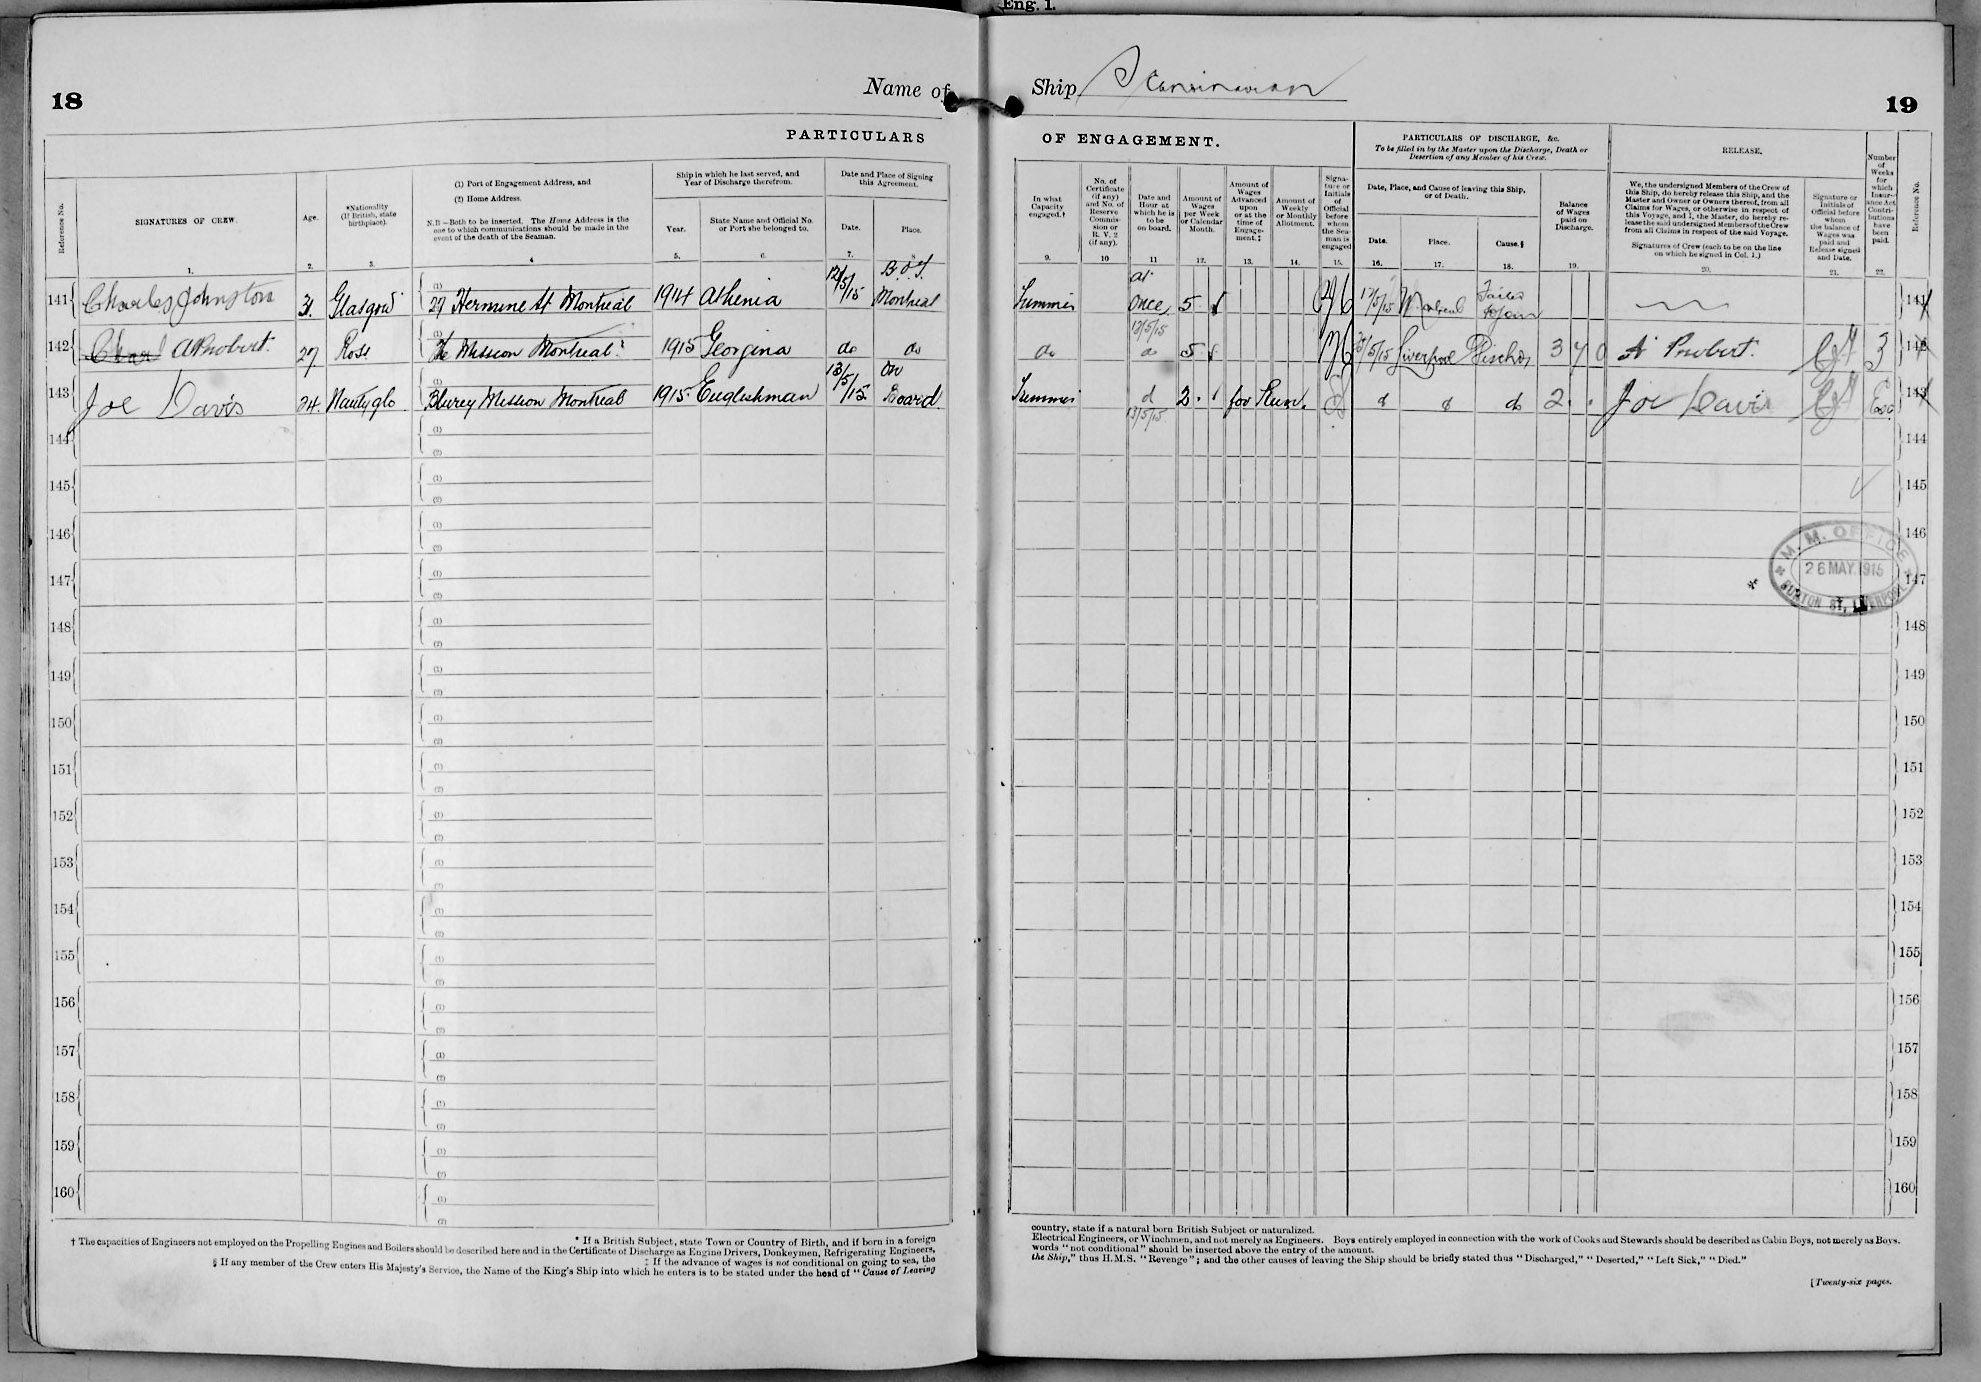 Eng. 1.
18
Name of
Ship
Scandinavian
19
PARTICULARS
OF ENGAGEMENT.
PARTICULARS OF DISCHARGE, &c.
To be filled in by the Master upon the Discharge, Death or
Desertion of any Member of his Crew.
RELEASE.
Reference No.
SIGNATURES OF CREW.
Age.
*Nationality
(If British, state
birthplace).
(1) Port of Engagement Address, and
(2) Home Address.
N.B.—Both to be inserted. The Home Address is the
one to which communications should be made in the
event of the death of the Seaman.
Ship in which he last served, and
Year of Discharge therefrom.
Year.
State Name and Official No.
or Port she belonged to.
Date and Place of Signing
this Agreement.
Date.
Place.
In what
Capacity
engaged.†
No. of
Certificate
(if any)
and No. of
Reserve
Commis-
sion or
R. V. 2
(if any).
Date and
Hour at
which he is
to be
on board.
Amount of
Wages
per Week
or Calendar
Month.
Amount of
Wages
Advanced
upon
or at the
time of
Engage-
ment.‡
Amount of
Weekly
or Monthly
Allotment.
Signa-
ture or
Initials
of
Official
before
whom
the Sea-
man is
engaged
Date, Place, and Cause of leaving this Ship,
or of Death.
Date.
Place.
Cause.§
Balance
of Wages
paid on
Discharge.
We, the undersigned Members of the Crew of
this Ship, do hereby release this Ship, and the
Master and Owner or Owners thereof, from all
Claims for Wages, or otherwise in respect of
this Voyage, and I, the Master, do hereby re-
lease the said undersigned Members of the Crew
from all Claims in respect of the said Voyage.
Signatures of Crew (each to be on the line
on which he signed in Col. 1.)
Signature or
Initials of
Official before
whom
the balance of
Wages was
paid and
Release signed
and Date.
Number
of
Weeks
for
which
Insur-
ance Act
Contri-
butions
have
been
paid.
Reference No.
1. 2. 3. 4 5. 6. 7. 8. 9. 10 11 12. 13. 14. 15. 16. 17. 18. 19. 20. 21. 22.
141 Charles Johnston 31. Glasgow (1) 29 Hermine St Montreal 1914 Athenia 12/5/15 B.O.T. Montreal Trimmer at once 5 17/5/15 Montreal Failed to join 141
13/5/15
142 A Probert. 27 Ross The Mission Montreal 1915 Georgina do do do 5 25/5/15 Liverpool Dischd 3 7 0 A Probert. 3 142
143 Joe Davis 24. Nantyglo (1) Mission Montreal 1915. Englishman 13/5/15 on Board. Trimmer d 2. for Run. d d do 2. Joe Davis 143
13/5/15
144 (1) (2) 144
145 (1) (2) 145
146 (1) (2) 146
M. M. OFFICE
26 MAY. 1915
BURTON ST, LIVERPOOL
147 (1) (2) 147
148 (1) (2) 148
149 (1) (2) 149
150 (1) (2) 150
151 (1) (2) 151
152 (1) (2) 152
153 (1) (2) 153
154 (1) (2) 154
155 (1) (2) 155
156 (1) (2) 156
157 (1) (2) 157
158 (1) (2) 158
159 (1) (2) 159
160 (1) (2) 160
* If a British Subject, state Town or Country of Birth, and if born in a foreign
† The capacities of Engineers not employed on the Propelling Engines and Boilers should be described here and in the Certificate of Discharge as Engine Drivers, Donkeymen, Refrigerating Engineers,
‡ If the advance of wages is not conditional on going to sea, the
§ If any member of the Crew enters His Majesty's Service, the Name of the King's Ship into which he enters is to be stated under the head of "Cause of Leaving
country, state if a natural born British Subject or naturalized.
Electrical Engineers, or Winchmen, and not merely as Engineers. Boys entirely employed in connection with the work of Cooks and Stewards should be described as Cabin Boys, not merely as Boys.
words "not conditional" should be inserted above the entry of the amount.
the Ship," thus H.M.S. "Revenge"; and the other causes of leaving the Ship should be briefly stated thus "Discharged," "Deserted," "Left Sick," "Died."
[Twenty-six pages.